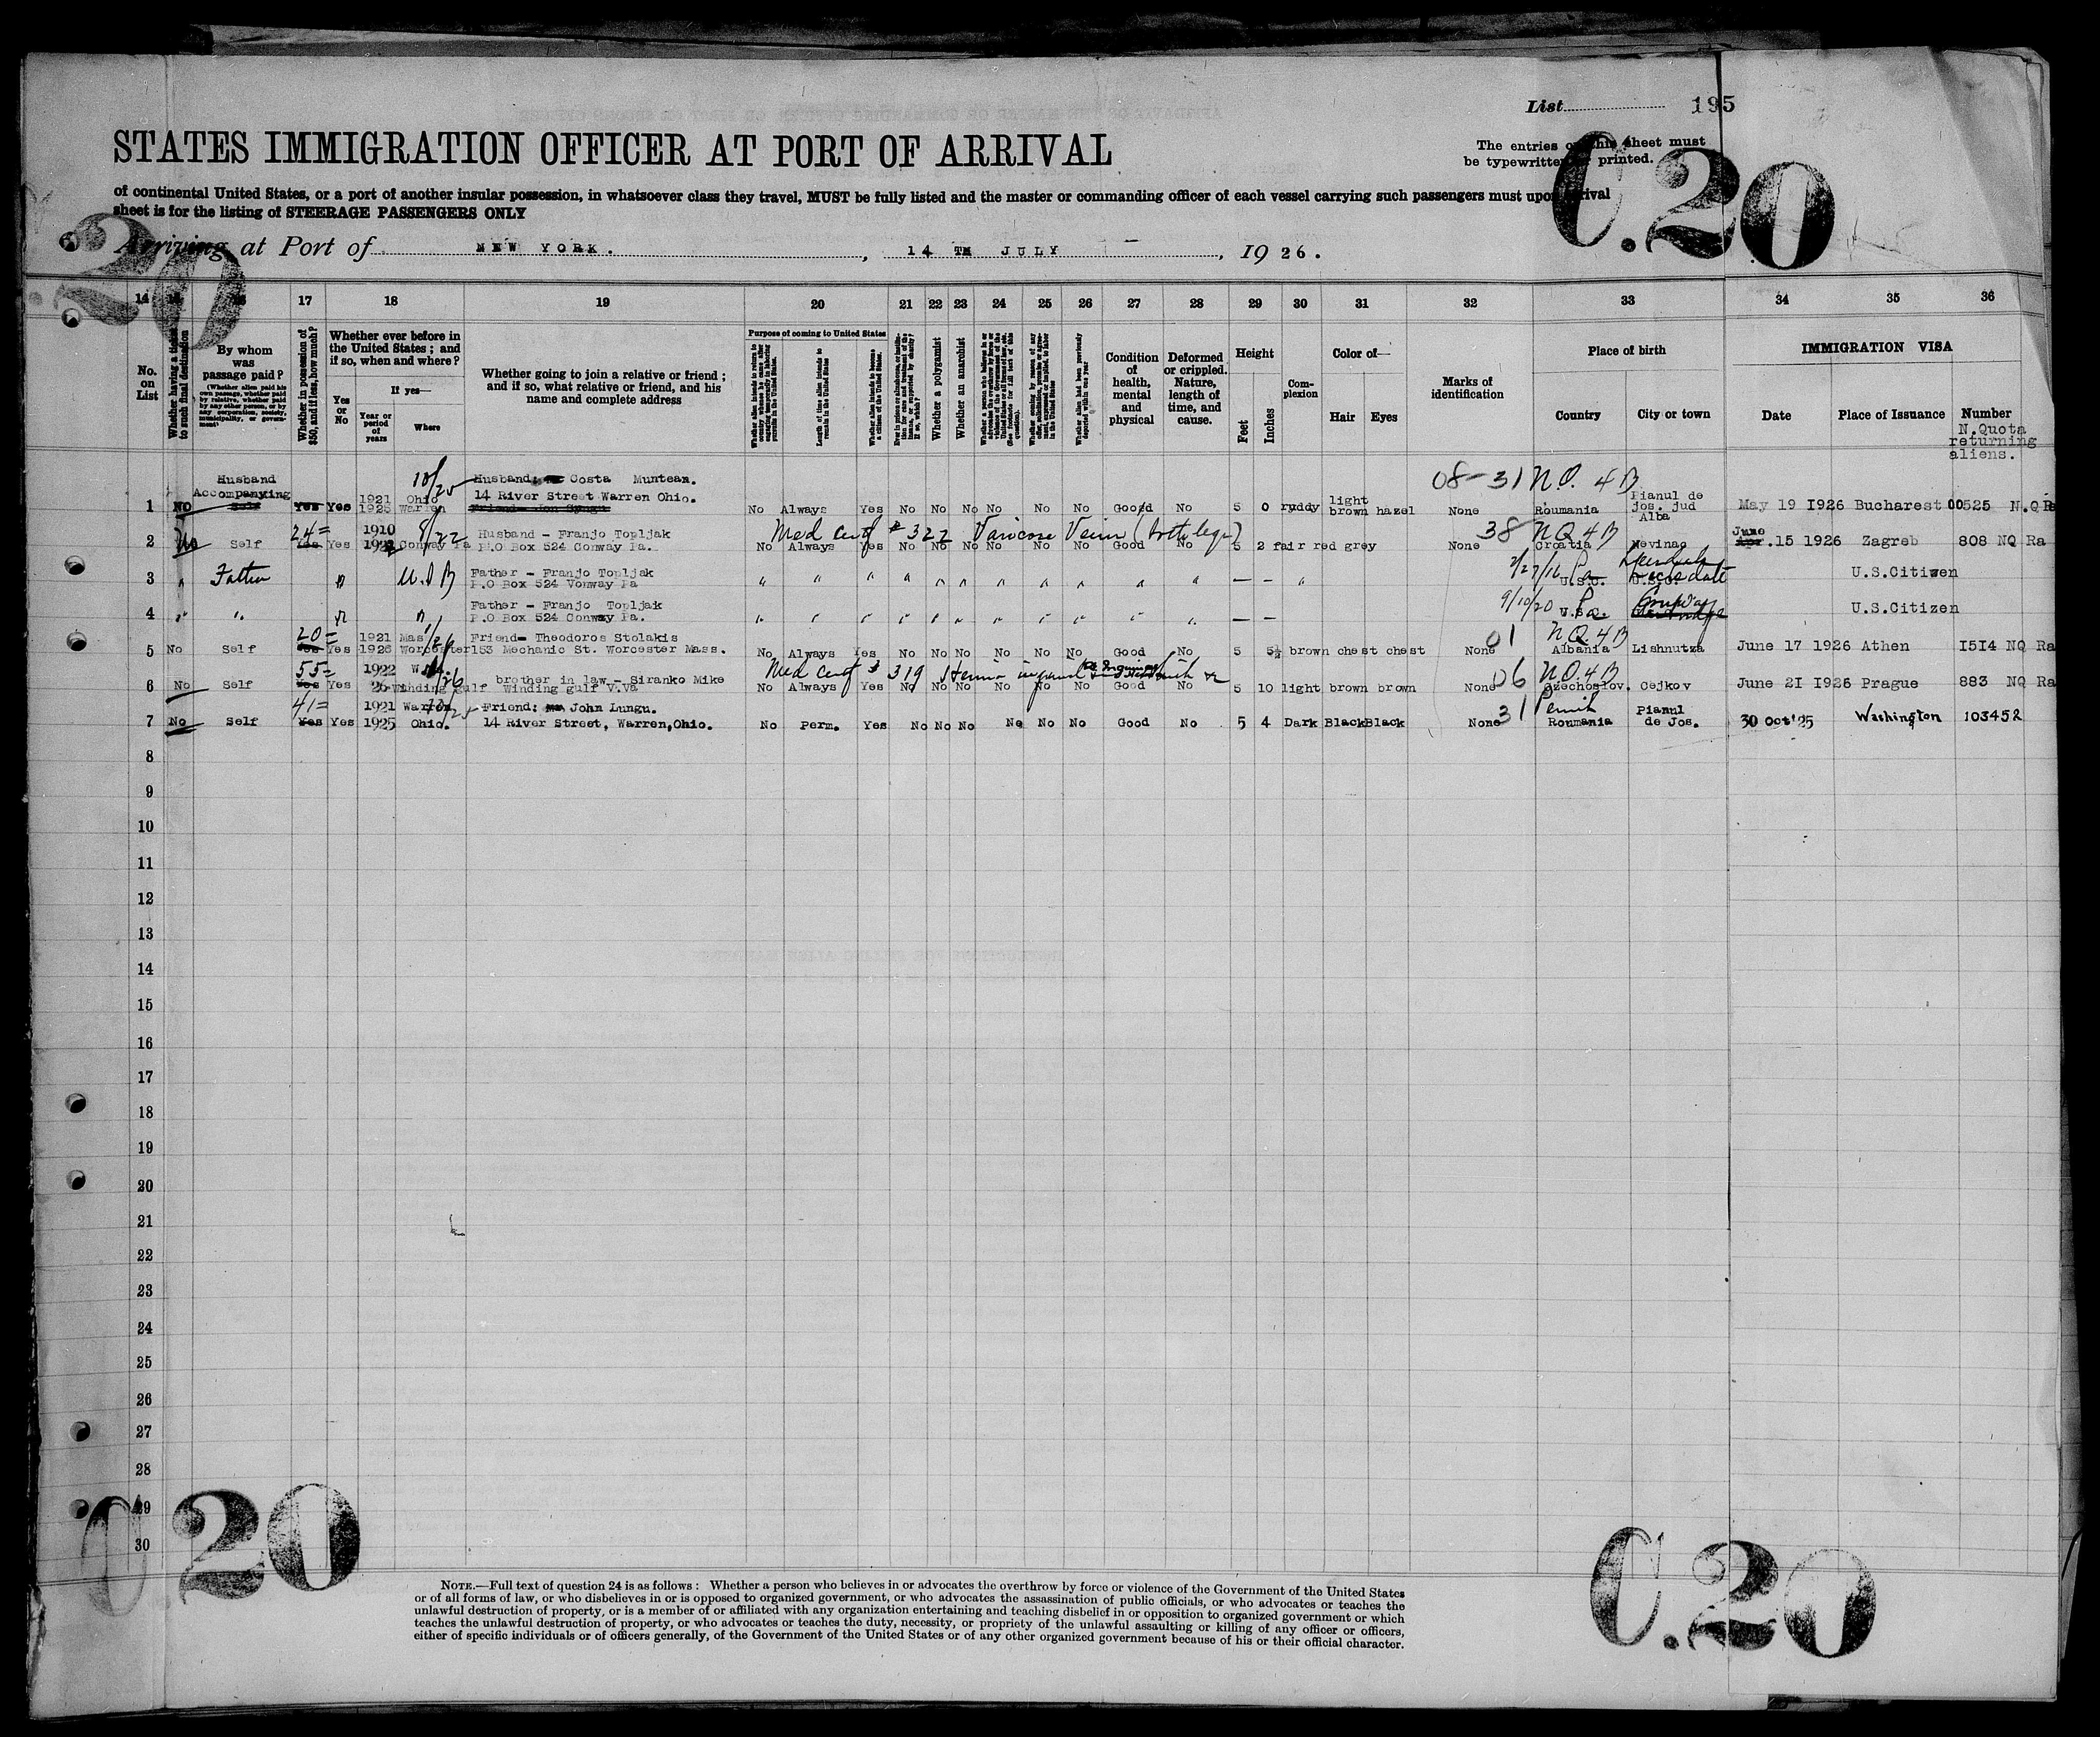 List 195
The entries on this sheet must
be typewritten or printed.
C.20
20
STATES IMMIGRATION OFFICER AT PORT OF ARRIVAL
of continental United States, or a port of another insular possession, in whatsoever class they travel, MUST be fully listed and the master or commanding officer of each vessel carrying such passengers must upon arrival
sheet is for the listing of STEERAGE PASSENGERS ONLY
Arriving at Port of NEW YORK. , 14 TH JULY , 19 26.
14 15 16 17 18 19 20 21 22 23 24 25 26 27 28 29 30 31 32 33 34 35 36
No. on List
Whether having a ticket to such final destination
By whom was passage paid?
(Whether alien paid his own passage, whether paid by relative, whether paid by any other person, or by any corporation, society, municipality, or government)
Whether in possession of $50, and if less, how much?
Whether ever before in the United States; and if so, when and where?
Yes or No
If yes—
Year or period of years
Where
Whether going to join a relative or friend; and if so, what relative or friend, and his name and complete address
Purpose of coming to United States
Length of time alien intends to remain in the United States
Whether alien intends to become a citizen of the United States.
Whether a polygamist
Whether an anarchist
Whether alien had been previously deported within one year
Condition of health, mental and physical
Deformed or crippled. Nature, length of time, and cause.
Height
Feet Inches
Complexion
Color of—
Hair Eyes
Marks of identification
Place of birth
Country City or town
IMMIGRATION VISA
Date Place of Issuance Number
N.Quota
returning
aliens.
1 No Husband Accompanying Self Yes Yes 1921 1925 Ohio Warren 10/25 Husband: Costa Muntean. 14 River Street Warren Ohio. No Always Yes No No No No No No Good No 5 0 ruddy light brown hazel None 08-31 N.Q. 4B Roumania Pianul de jos. jud Alba May 19 1926 Bucharest 00525 N.Q Ra
2 No Self 24= Yes Yes 1910 1922 8/22 Conway Pa Husband - Franjo Topljak P.O Box 524 Conway Pa. Med cert # 322 Varicose Veins (both legs) No Always Yes No No No No No No Good No 5 2 fair red grey None 38 NQ 4B Croatia Nevinac June 15 1926 Zagreb 808 NQ Ra
3 " Father " U.S.B Father - Franjo Topljak P.O Box 524 Vonway Pa " " " " " " " " " " " — — " 2/27/16 Pa U.S.C. U.S.Citizen
4 " " " " Father - Franjo Topljak P.O Box 524 Conway Pa " " " " " " " " " " " — — 9/10/20 Pa Conway U.S.Citizen
5 No Self 20= Yes Yes 1921 1926 Mas Worcester 1/26 Friend- Theodoros Stolakis 153 Mechanic St. Worcester Mass. No Always Yes No No No No No No Good No 5 5½ brown chest chest None 01 N.Q. 4B Albania Lishnutza June 17 1926 Athen 1514 NQ Ra
6 No Self 55= Yes Yes 1922 26 Winding gulf brother in law - Siranko Mike Winding gulf V.Va Med cert # 319 Hernia No Always Yes No No No No No No Good No 5 10 light brown brown None 06 N.Q. 4B Czechoslov. Cejkov June 21 1926 Prague 883 NQ Ra
7 No Self 41= Yes Yes 1921 1925 Warren Ohio. Friend: John Lungu. 14 River Street, Warren, Ohio. No Perm. Yes No No No No No No Good No 5 4 Dark Black Black None 31 Permit Roumania Pianul de Jos. 30 Oct '25 Washington 103452
8
9
10
11
12
13
14
15
16
17
18
19
20
21
22
23
24
25
26
27
28
29
30
C.20
C.20
NOTE.—Full text of question 24 is as follows: Whether a person who believes in or advocates the overthrow by force or violence of the Government of the United States
or of all forms of law, or who disbelieves in or is opposed to organized government, or who advocates the assassination of public officials, or who advocates or teaches the
unlawful destruction of property, or is a member of or affiliated with any organization entertaining and teaching disbelief in or opposition to organized government or which
teaches the unlawful destruction of property, or who advocates or teaches the duty, necessity, or propriety of the unlawful assaulting or killing of any officer or officers,
either of specific individuals or of officers generally, of the Government of the United States or of any other organized government because of his or their official character.